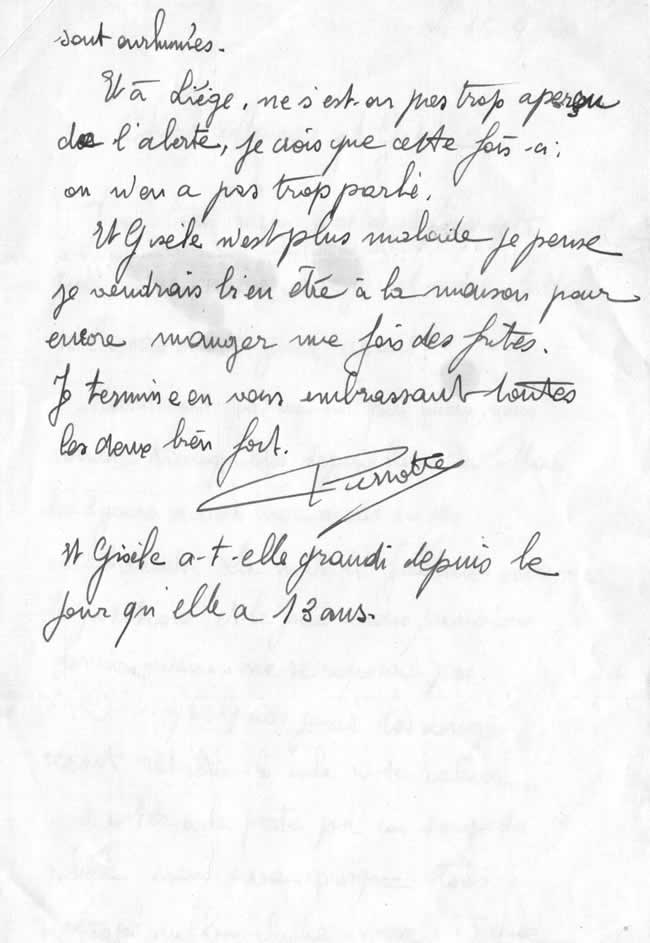 sont enrhumées.
Et à Liège, ne s'est-on pas trop aperçu
de l'alerte, je crois que cette fois-ci;
on n'en a pas trop parlé.
Et Gisèle n'est plus malade je pense
je vendrais bien être à la maison pour
encore manger une fois des frites.
Je termine en vous embrassant toutes
les deux bien fort.
Pierrotte
Et Gisèle a-t-elle grandi depuis le
jour qu'elle a 13 ans.